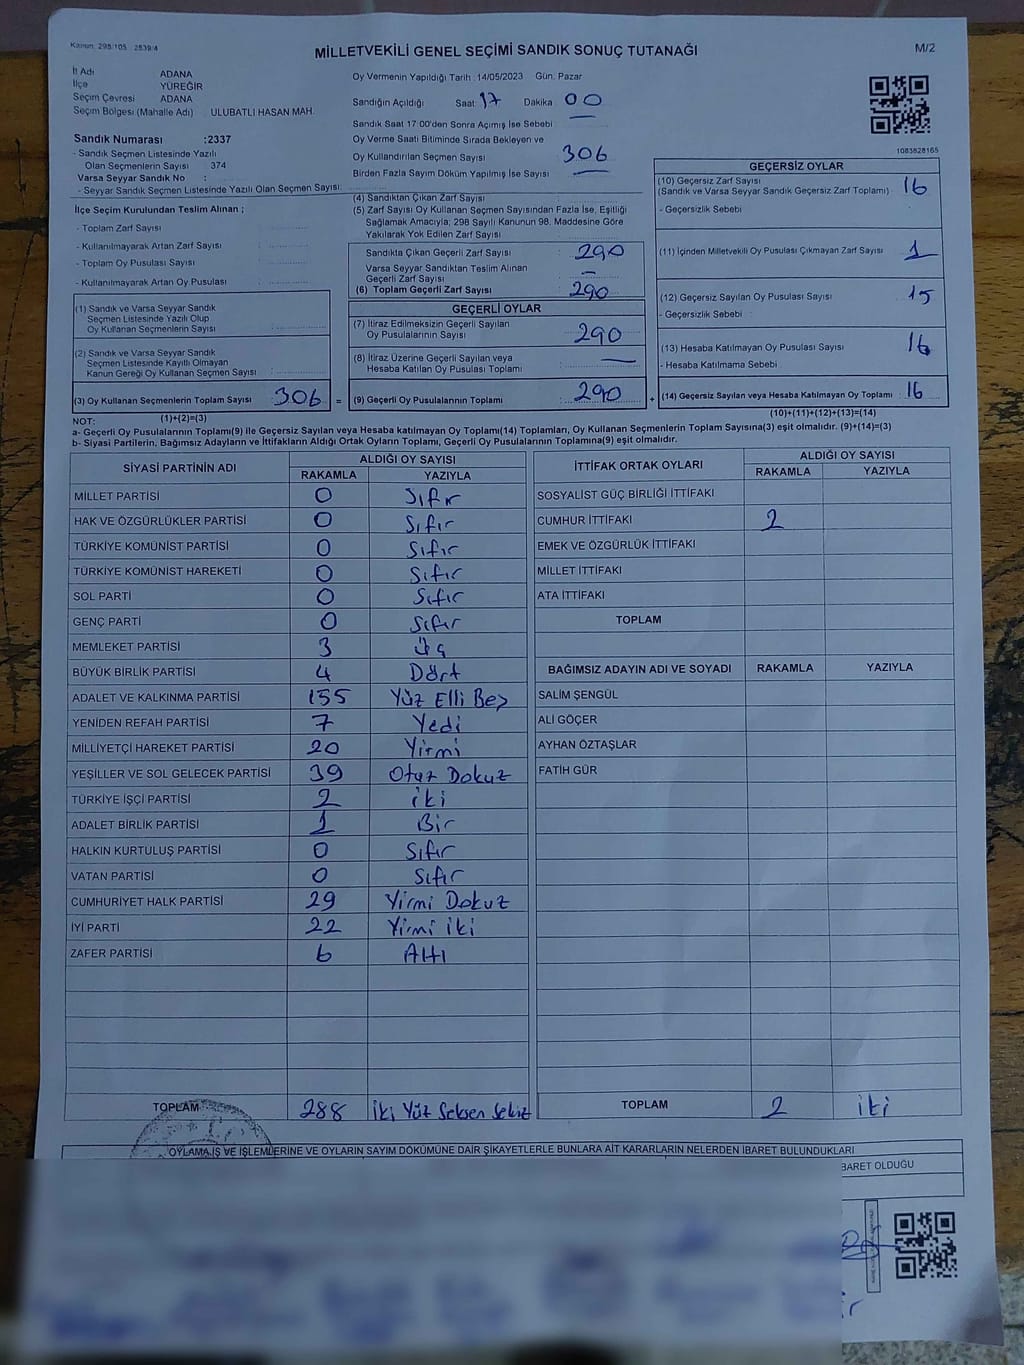 Kanun: 298/105 2839/4
MİLLETVEKİLİ GENEL SEÇİMİ SANDIK SONUÇ TUTANAĞI
M/2
İl Adı ADANA
İlçe YÜREĞİR
Seçim Çevresi ADANA
Seçim Bölgesi (Mahalle Adı) : ULUBATLI HASAN MAH.
Sandık Numarası :2337
- Sandık Seçmen Listesinde Yazılı
Olan Seçmenlerin Sayısı : 374
Varsa Seyyar Sandık No :
- Seyyar Sandık Seçmen Listesinde Yazılı Olan Seçmen Sayısı:
Oy Vermenin Yapıldığı Tarih : 14/05/2023 Gün: Pazar
Sandığın Açıldığı Saat 17 Dakika 00
Sandık Saat 17:00'den Sonra Açılmış İse Sebebi
Oy Verme Saati Bitiminde Sırada Bekleyen ve
Oy Kullandırılan Seçmen Sayısı : 306
Birden Fazla Sayım Döküm Yapılmış İse Sayısı : —
1083828165
İlçe Seçim Kurulundan Teslim Alınan ;
- Toplam Zarf Sayısı :
- Kullanılmayarak Artan Zarf Sayısı :
- Toplam Oy Pusulası Sayısı :
- Kullanılmayarak Artan Oy Pusulası :
(1) Sandık ve Varsa Seyyar Sandık
Seçmen Listesinde Yazılı Olup
Oy Kullanan Seçmenlerin Sayısı :
(2) Sandık ve Varsa Seyyar Sandık
Seçmen Listesinde Kayıtlı Olmayan
Kanun Gereği Oy Kullanan Seçmen Sayısı :
(3) Oy Kullanan Seçmenlerin Toplam Sayısı : 306 =
(1)+(2)=(3)
(4) Sandıktan Çıkan Zarf Sayısı :
(5) Zarf Sayısı Oy Kullanan Seçmen Sayısından Fazla İse, Eşitliği
Sağlamak Amacıyla; 298 Sayılı Kanunun 98. Maddesine Göre
Yakılarak Yok Edilen Zarf Sayısı :
Sandıkta Çıkan Geçerli Zarf Sayısı : 290
Varsa Seyyar Sandıktan Teslim Alınan
Geçerli Zarf Sayısı : —
(6) Toplam Geçerli Zarf Sayısı : 290
GEÇERLİ OYLAR
(7) İtiraz Edilmeksizin Geçerli Sayılan
Oy Pusulalarının Sayısı : 290
(8) İtiraz Üzerine Geçerli Sayılan veya
Hesaba Katılan Oy Pusulası Toplamı : —
(9) Geçerli Oy Pusulalarının Toplamı : 290 +
GEÇERSİZ OYLAR
(10) Geçersiz Zarf Sayısı
(Sandık ve Varsa Seyyar Sandık Geçersiz Zarf Toplamı) : 16
- Geçersizlik Sebebi :
(11) İçinden Milletvekili Oy Pusulası Çıkmayan Zarf Sayısı : 1
(12) Geçersiz Sayılan Oy Pusulası Sayısı : 15
- Geçersizlik Sebebi :
(13) Hesaba Katılmayan Oy Pusulası Sayısı : 16
- Hesaba Katılmama Sebebi :
(14) Geçersiz Sayılan veya Hesaba Katılmayan Oy Toplamı : 16
(10)+(11)+(12)+(13)=(14)
NOT:
a- Geçerli Oy Pusulalarının Toplamı(9) ile Geçersiz Sayılan veya Hesaba katılmayan Oy Toplamı(14) Toplamları, Oy Kullanan Seçmenlerin Toplam Sayısına(3) eşit olmalıdır. (9)+(14)=(3)
b- Siyasi Partilerin, Bağımsız Adayların ve İttifakların Aldığı Ortak Oyların Toplamı, Geçerli Oy Pusulalarının Toplamına(9) eşit olmalıdır.
SİYASİ PARTİNİN ADI ALDIĞI OY SAYISI
RAKAMLA YAZIYLA
MİLLET PARTİSİ 0 Sıfır
HAK VE ÖZGÜRLÜKLER PARTİSİ 0 Sıfır
TÜRKİYE KOMÜNİST PARTİSİ 0 Sıfır
TÜRKİYE KOMÜNİST HAREKETİ 0 Sıfır
SOL PARTİ 0 Sıfır
GENÇ PARTİ 0 Sıfır
MEMLEKET PARTİSİ 3 Üç
BÜYÜK BİRLİK PARTİSİ 4 Dört
ADALET VE KALKINMA PARTİSİ 155 Yüz Elli Beş
YENİDEN REFAH PARTİSİ 7 Yedi
MİLLİYETÇİ HAREKET PARTİSİ 20 Yirmi
YEŞİLLER VE SOL GELECEK PARTİSİ 39 Otuz Dokuz
TÜRKİYE İŞÇİ PARTİSİ 2 iki
ADALET BİRLİK PARTİSİ 1 Bir
HALKIN KURTULUŞ PARTİSİ 0 Sıfır
VATAN PARTİSİ 0 Sıfır
CUMHURİYET HALK PARTİSİ 29 Yirmi Dokuz
İYİ PARTİ 22 Yirmi iki
ZAFER PARTİSİ 6 Altı
TOPLAM 288 iki Yüz Seksen Sekiz
İTTİFAK ORTAK OYLARI ALDIĞI OY SAYISI
RAKAMLA YAZIYLA
SOSYALİST GÜÇ BİRLİĞİ İTTİFAKI
CUMHUR İTTİFAKI 2
EMEK VE ÖZGÜRLÜK İTTİFAKI
MİLLET İTTİFAKI
ATA İTTİFAKI
TOPLAM
BAĞIMSIZ ADAYIN ADI VE SOYADI RAKAMLA YAZIYLA
SALİM ŞENGÜL
ALİ GÖÇER
AYHAN ÖZTAŞLAR
FATİH GÜR
TOPLAM 2 iki
OYLAMA İŞ VE İŞLEMLERİNE VE OYLARIN SAYIM DÖKÜMÜNE DAİR ŞİKAYETLERLE BUNLARA AİT KARARLARIN NELERDEN İBARET BULUNDUKLARI
BARET OLDUĞU